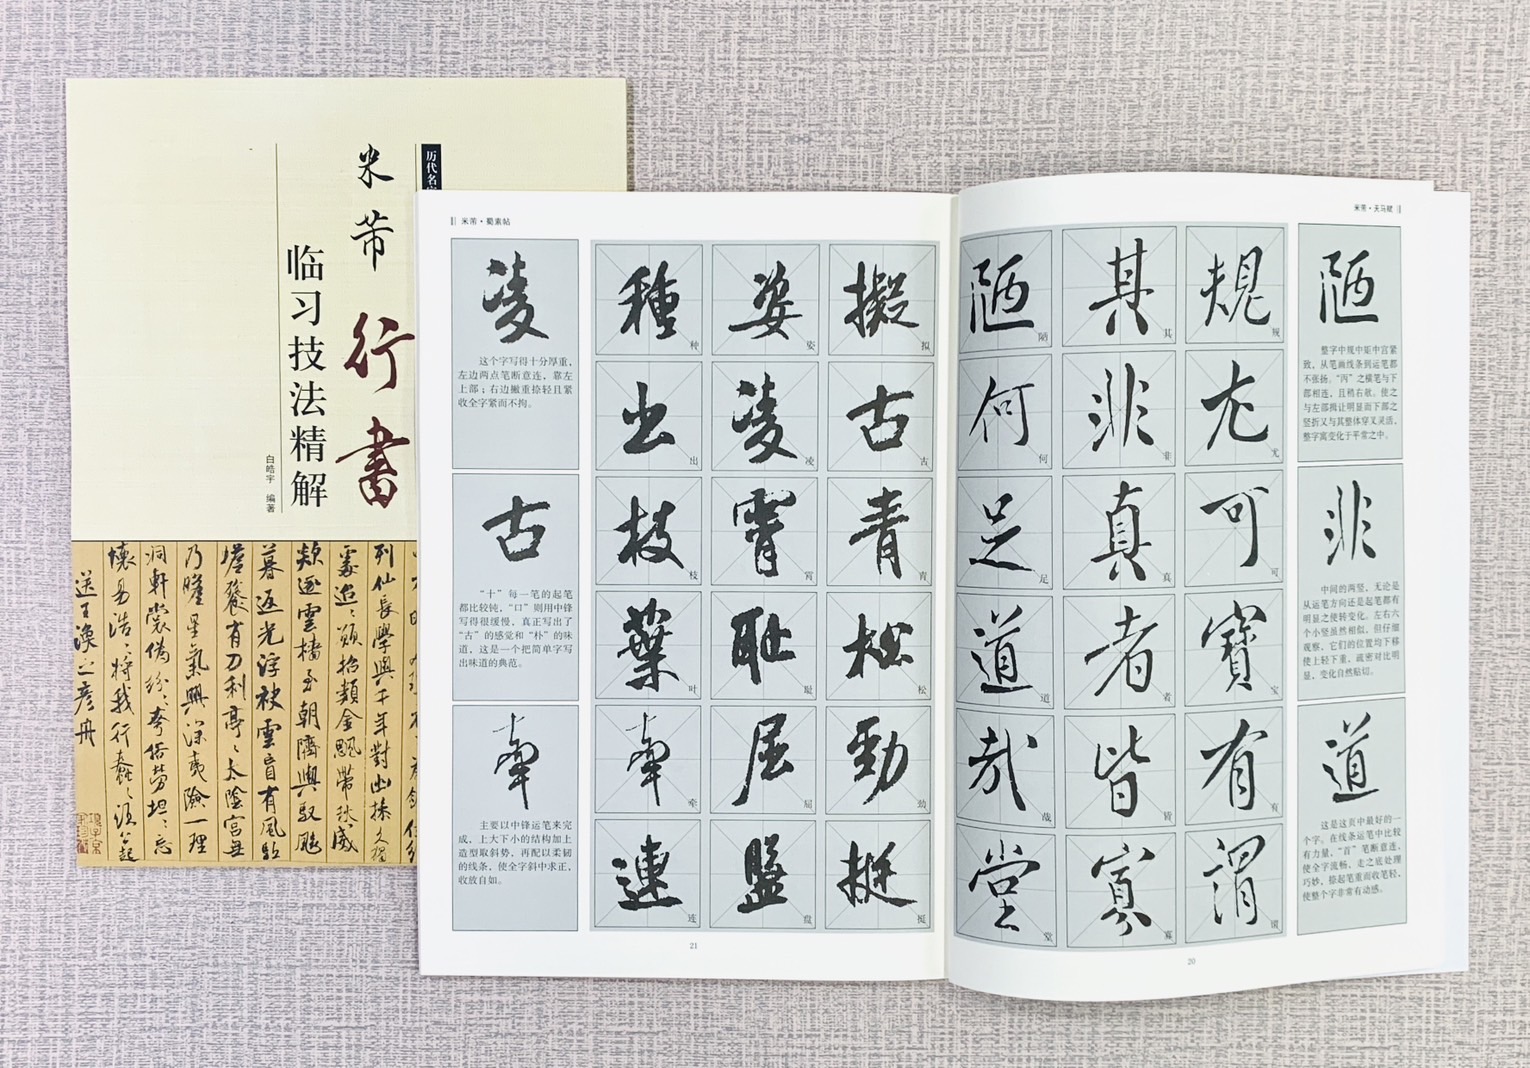 历代名
米芾
行書
临习技法精解
白皓宇 编著
列仙長學與千年對幽採久獨
象逃遁頌抬類金飈帶秋威
歘逐雲檣至朝隮與馭飈
暮返光浮袂雲肓有風馭
嗟餐有刀利亭亭太陰宮無
乃瞻星氣興深夷險一理
洞軒裳偽紛紛夸俗勞坦坦忘
懷易浩浩將我行蠢蠢須公起
送王渙之彦舟
米芾·蜀素帖
凌
这个字写得十分厚重，
左边两点笔断意连，靠左
上部；右边撇重捺轻且紧
收全字紧而不拘。
古
“十”每一笔的起笔
都比较钝，“口”则用中锋
写得很缓慢，真正写出了
“古”的感觉和“朴”的味
道，这是一个把简单字写
出味道的典范。
牽
主要以中锋运笔来完
成，上大下小的结构加上
造型取斜势，再配以柔韧
的线条，使全字斜中求正，
收放自如。
擬 拟
古 古
青 青
松 松
勁 劲
挺 挺
姿 姿
凌 凌
霄 霄
恥 耻
屈 屈
盤 盘
種 种
出 出
枝 枝
葉 叶
牽 牵
連 连
21
米芾·天马赋
陋
整字中规中矩中宫紧
致，从笔画线条到运笔都
不张扬。“丙”之横笔与下
部相连，且稍右敞。使之
与左部揖让明显而下部之
竖折又与其整体穿叉灵活，
整字寓变化于平常之中。
非
中间的两竖，无论是
从运笔方向还是起笔都有
明显之使转变化。左右六
个小竖虽然相似，但仔细
观察，它们的位置均下移
使上轻下重，疏密对比明
显，变化自然贴切。
道
这是这页中最好的一
个字。在线条运笔中比较
有力量，“首”笔断意连，
使全字流畅，走之底处理
巧妙，捺起笔重而收笔轻，
使整个字非常有动感。
規 规
尤 尤
可 可
寶 宝
有 有
謂 谓
其 其
非 非
真 真
者 者
皆 皆
寡 寡
陋 陋
何 何
足 足
道 道
哉 哉
堂 堂
20